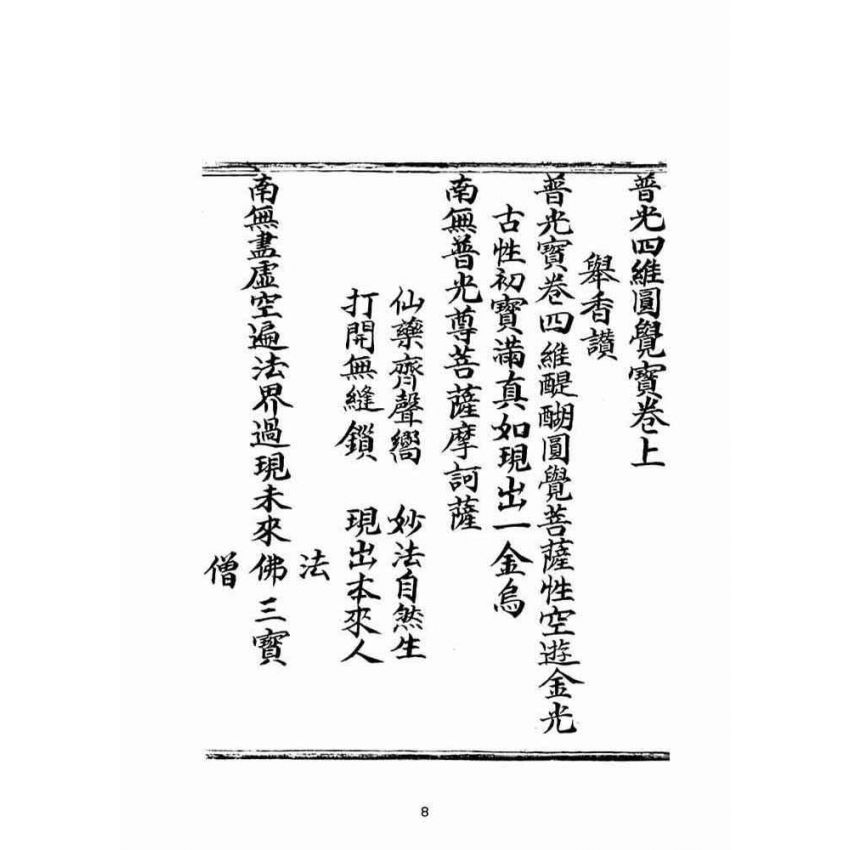 普光四維圓覺寶卷上
舉香讚
普光寶卷四維醍醐圓覺菩薩性空遊金光
古性初寶滿真如現出一金烏
南無普光尊菩薩摩訶薩
仙藥齊聲嚮 妙法自然生
打開無縫鎖 現出本來人
法
南無盡虛空遍法界過現未來佛三寶
僧
8